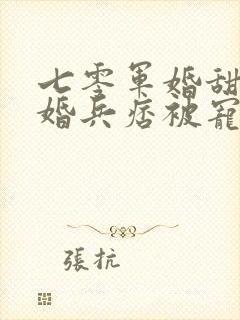 七零軍婚甜
婚兵痞被寵
張抗